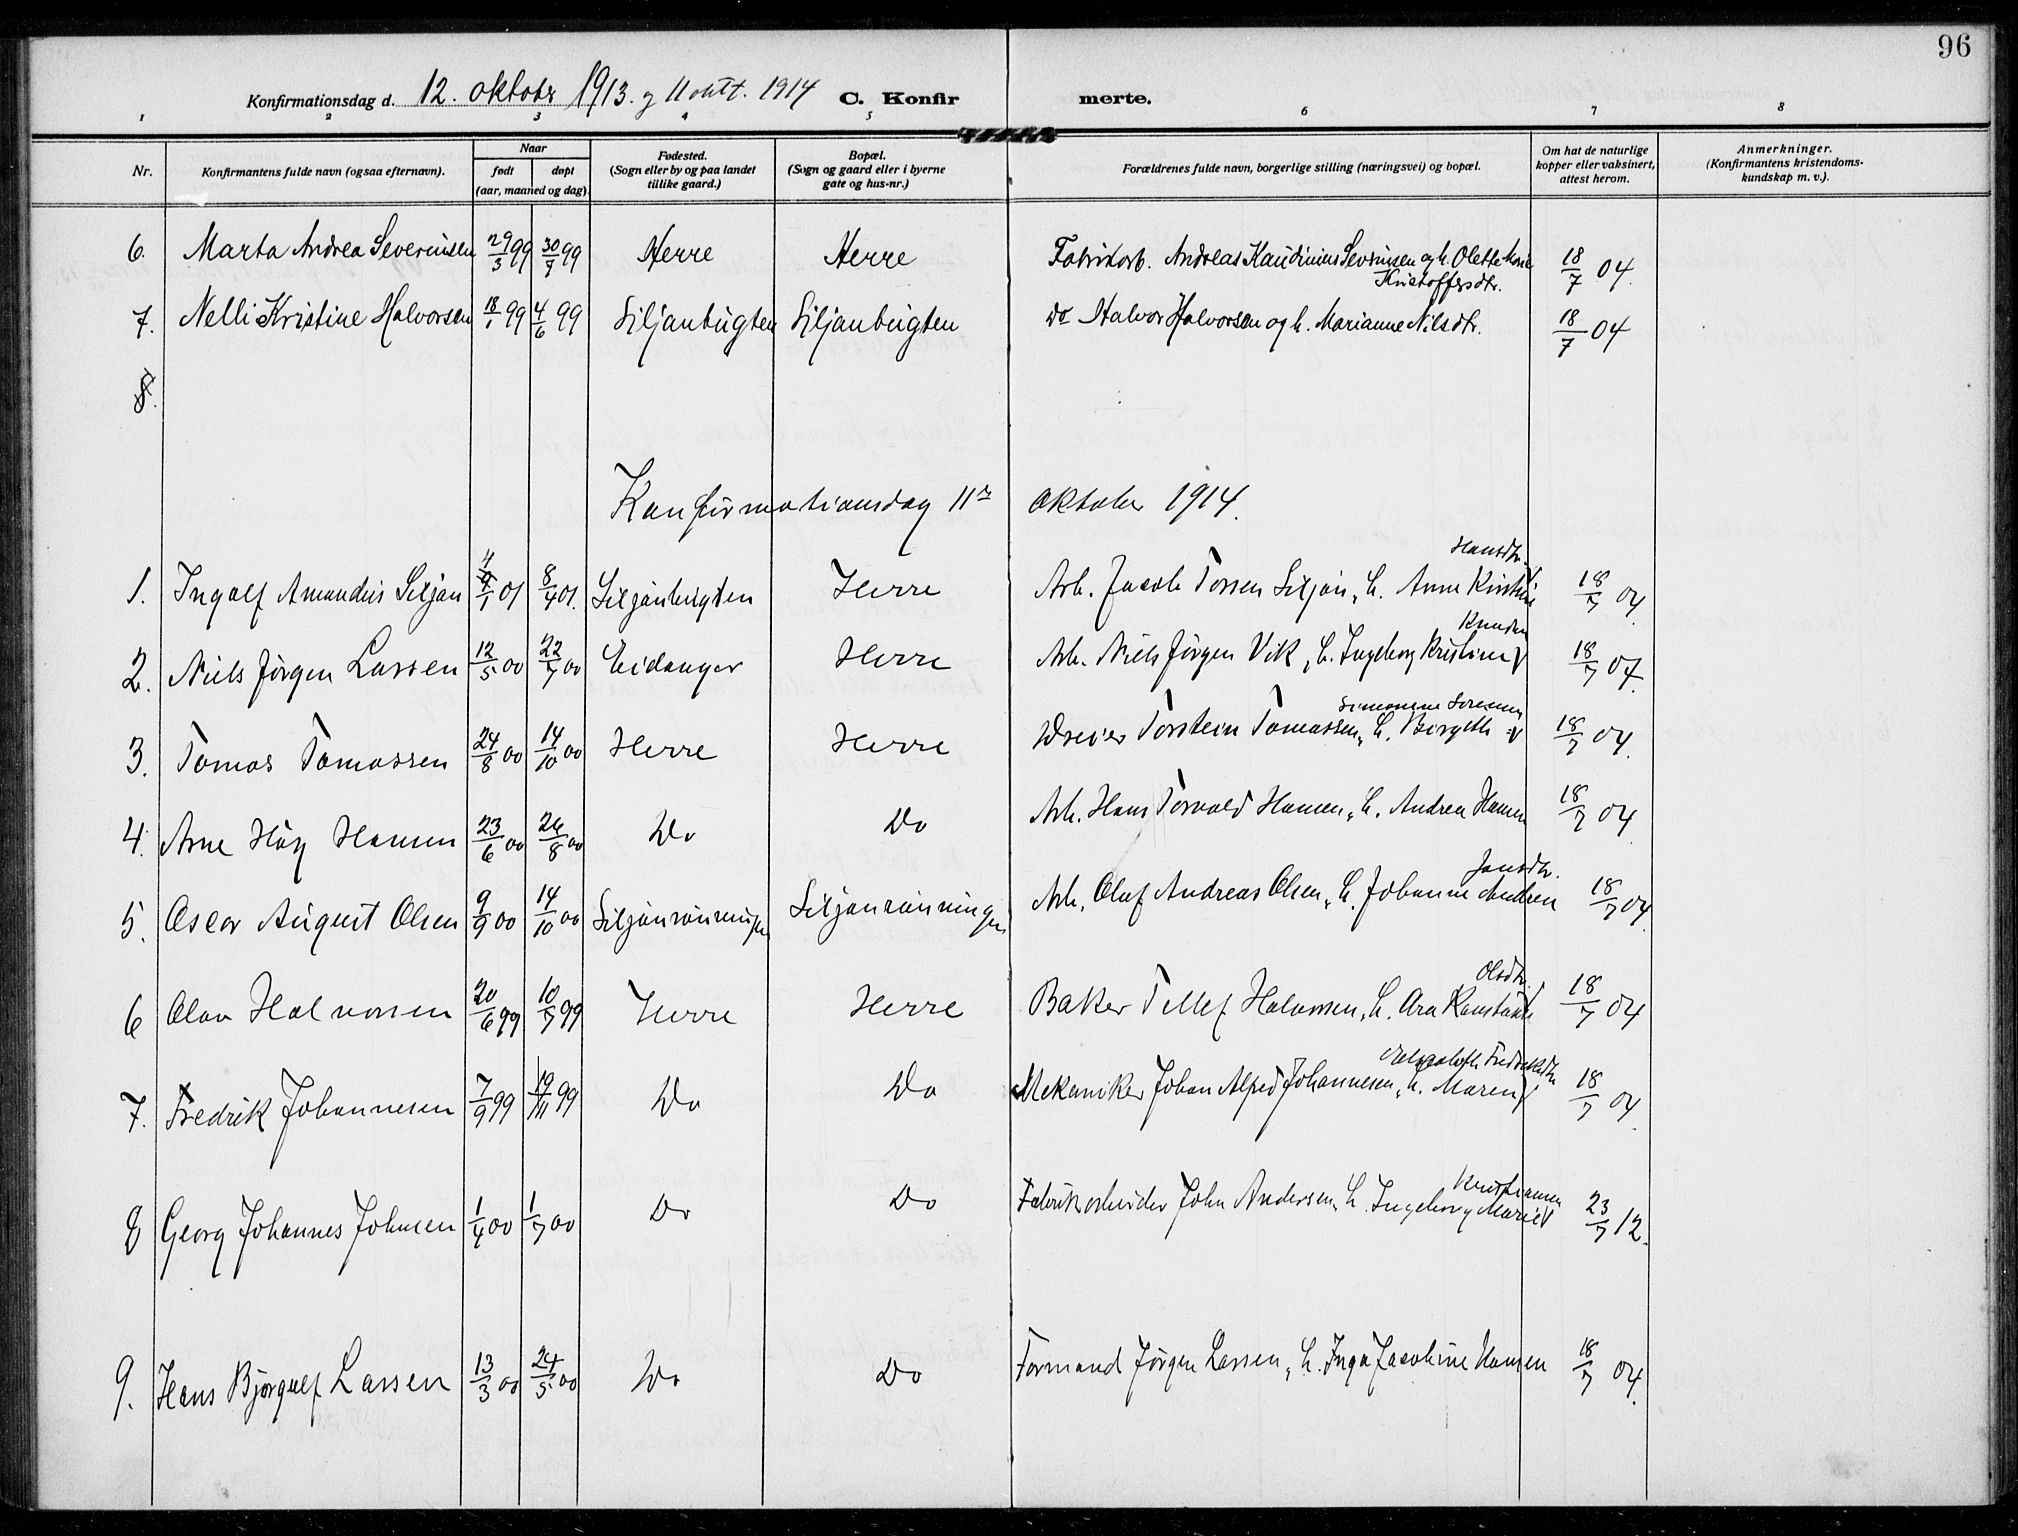 96
Konfirmationsdag d. 12. oktobr 1913. g 11 oktt. 1914 C. Konfirmerte.
1 2 3 4 5 6 7 8
Nr. Konfirmantens fulde navn (ogsaa efternavn). Naar født døpt (aar, maaned og dag). Fødested. (Sogn eller by og paa landet tillike gaard.) Bopæl. (Sogn og gaard eller i byerne gate og hus-nr.) Forældrenes fulde navn, borgerlige stilling (næringsvei) og bopæl. Om hat de naturlige kopper eller vaksinert, attest herom. Anmerkninger. (Konfirmantens kristendoms-kundskap m. v.).
6. Marta Andrea Severinsen 29/3 99 30/7 99 Herre Herre Fabrikarb. Andreas Kaudinius Severinsen og h. Olette Marie Kristoffersdtr. 18/7 04.
7. Nelli Kristine Halvorsen 18/1 99 4/6 99 Siljanbugten Siljanbugten do Halvor Halvorsen og h. Marianne Nilsdtr. 18/7 04
8.
Konfirmationsdag 11te oktober 1914.
1. Ingolf Amandus Siljan 4/1 01 8/4 01. Siljanbugten Herre Arb. Jacob Torsen Siljan, h. Anne Kirstine Hansdtr. 18/7 04.
2. Niels Jørgen Larsen 12/5 00 22/7 00 Eidanger Herre Arb. Niels Jørgen Vik, h. Ingeborg Kristine Knudsen 18/7 04.
3. Tomas Tomassen 24/8 00 14/10 00 Herre Herre Dreier Torstein Tomassen, h. Borgith Simonine Sørensen 18/7 04.
4. Arne Høy Hansen 23/6 00 26/8 00 Do Do Arb. Hans Torvald Hansen, h. Andrea Hansen 18/7 04
5. Oscar August Olsen 9/9 00 14/10 00 Siljanrønningen Siljanrønningen Arb. Oluf Andreas Olsen, h. Johanne Andrea Jonsdtr. 18/7 04.
6 Olav Halvorsen 20/6 99 10/7 99 Herre Herre Baker Tellef Halvorsen, h. Ara Konstanse Olsdtr. 18/7 04
7. Fredrik Johannesen 7/9 99 19/11 99 Do Do Mekaniker Johan Alfred Johannesen, h. Maren Fredriksdtr 18/7 04.
8 Georg Johannes Johnsen 1/4 00 1/7 00 Do Do Fabrikarbeider John Andersen, h. Ingeborg Marie Kristiansen 23/7 12.
9. Hans Bjørgulf Larsen 13/3 00 24/5 00 Do Do Formand Jørgen Larsen, h. Inga Jacobine Hansen 18/7 04.